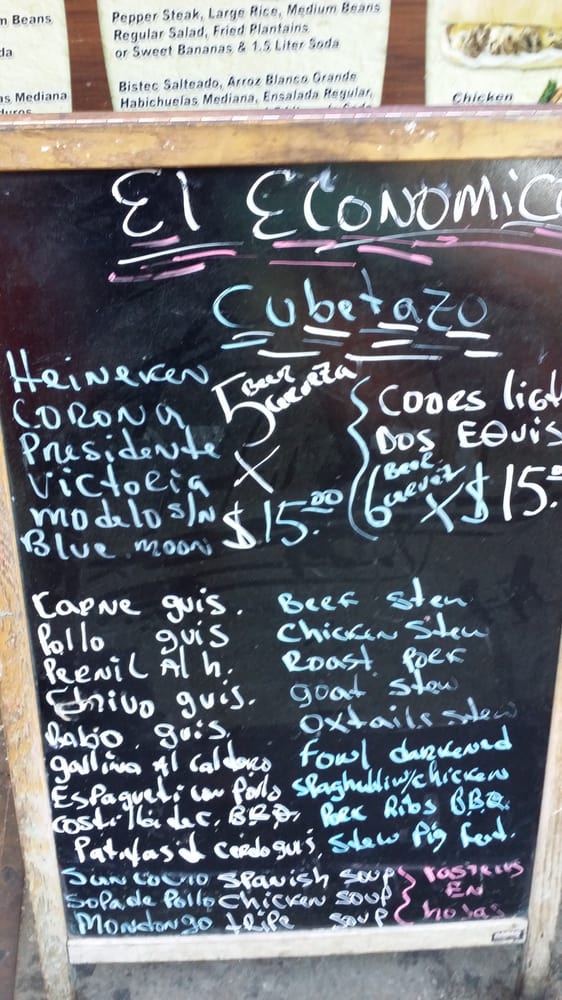 m Beans
da
as Mediana
duros
Pepper Steak, Large Rice, Medium Beans
Regular Salad, Fried Plantains
or Sweet Bananas & 1.5 Liter Soda
Bistec Salteado, Arroz Blanco Grande
Habichuelas Mediana, Ensalada Regular,
Chicken
El Economico
Cubetazo
Heineken
Corona
Presidente
Victoria
Modelo S/N
Blue moon
5 Beer
Cerveza
X
$15.00
Coors light
Dos Equis
6 Beer
X $15.
Carne guis. Beef Stew
Pollo guis Chicken Stew
Pernil Al h. Roast Pork
Chivo guis. goat Stew
Rabo guis. Oxtails Stew
gallina Al Caldero Fowl darkened
Espagueti con pollo Spaghetti w/chicken
Costilla de c. BBQ. Pork Ribs BBQ.
Patitas d cerdo guis. Stew Pig feet.
Sancocho Spanish Soup
Sopa de Pollo Chicken Soup
Mondongo tripe Soup
EN